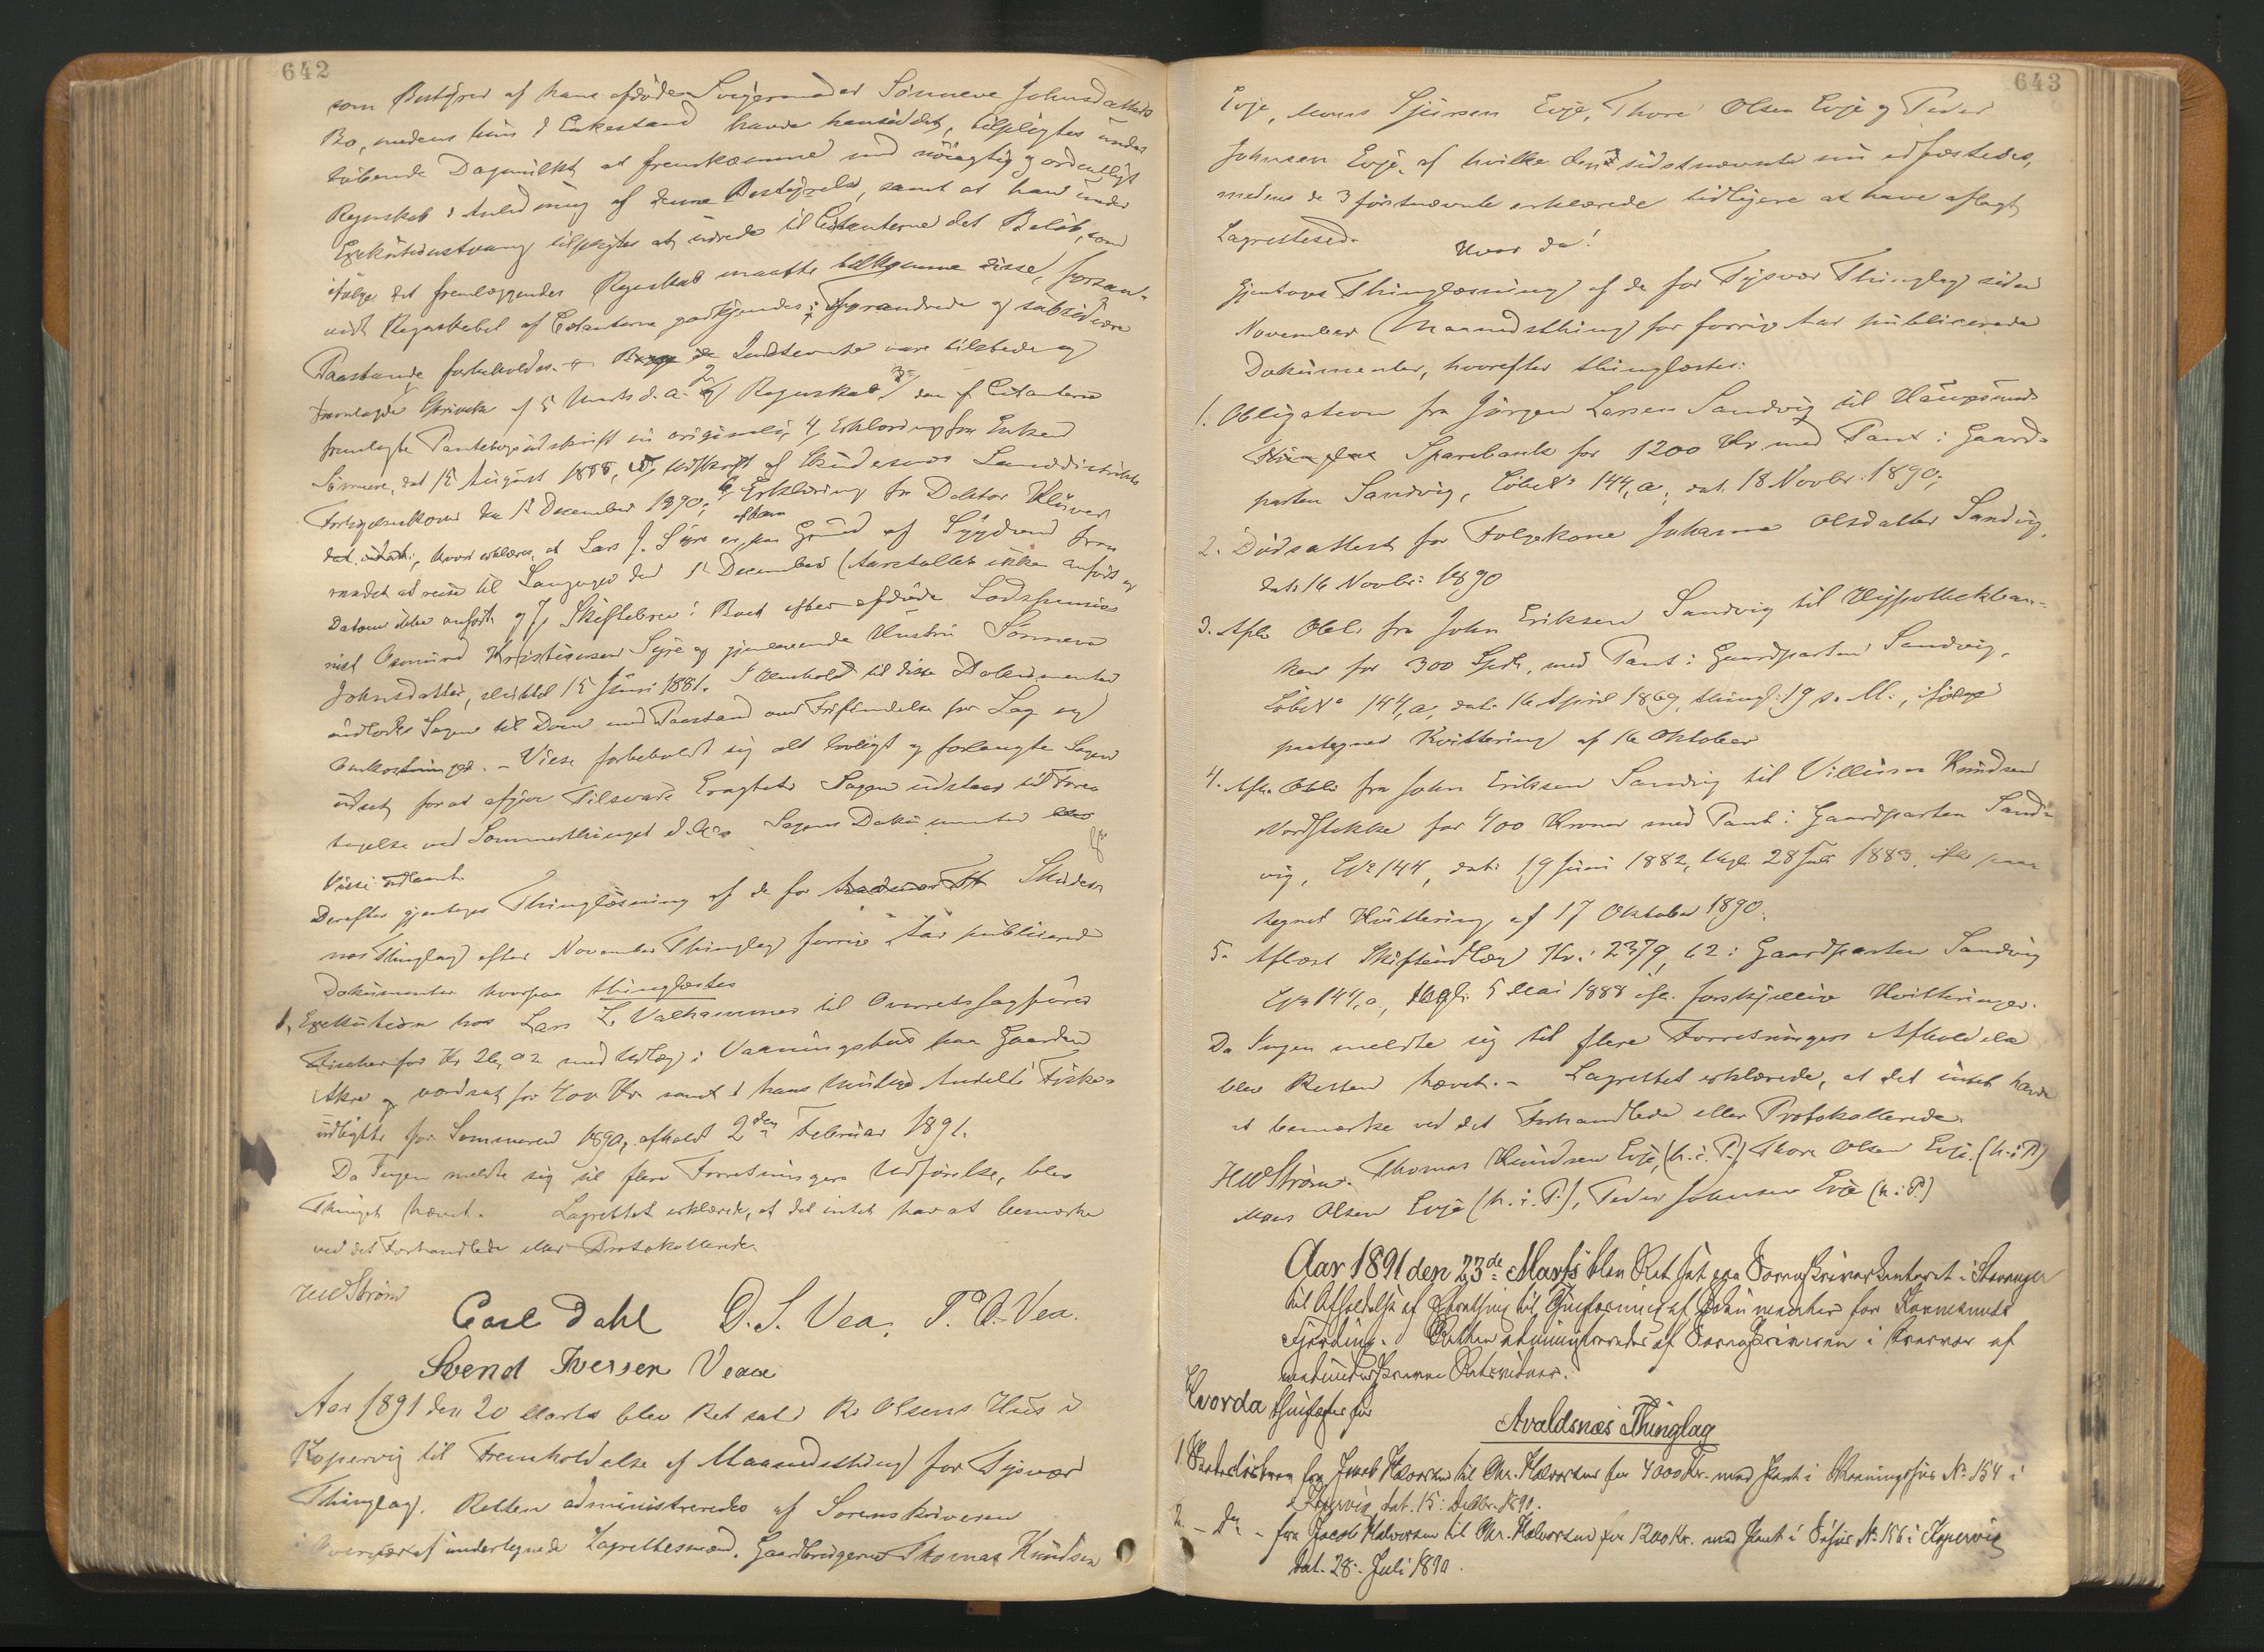 642
som Bestyrer af hans afdøde Svigermoder Sønneve Johnsdatters
Bo, medens hun i Enkestand havde hensiddet, tilpligtes under
løbende Dagmulkt at fremkomme med nøiagtig og ordentligt
Regnskab i Anledning af denne Bestyrelse, samt at han under
Exekutionstvang tilpligtes at udrede til Citanterne det Beløb, som
ifølge det fremlæggendes Regnskab maatte tilkomme disse, forsaa-
vidt Regnskabet af Citanterne godkjendes; forandrede og subsidiære
Paastande forbeholdes. Indstevnte var tilstede og
fremlagde Skrivelse af 5 Marts d. A. 2, Regnskab 3, den af Citanterne
fremlagte Pantebogsudskrift in originali, 4, Erklæring fra Enken
Sønneve, dat 15 August 1888, 5, Udskrift af Skudesnes Landdistrikts
Forligelseskom. den 1 December 1890; 6, Erklæring fra Doktor Kluver
dat. , hvori erklæres, at Lars J. Syre er, paa Grund af Sygdom fra-
raadet at reise til Langager den 1 December (Aarstallet ikke anført og
Datum ikke anført og 7, Skiftebrev i Boet efter afdøde Lodspensio-
nist Osmund Kristiansen Syre og gjenlevende Hustru Sønneve
Johnsdatter, sluttet 15 Juni 1881. I Henhold til disse Dokumenter
indlodes Sagen til Dom med Paastand om Frifindelse for Sag og
Omkostninger. – Viese forbeholdt sig alt lovligt og forlangte Sagen
udsat for at afgive Tilsvar. Eragtet: Sagen udstaar til Fore-
tagelse ved Sommerthinget d. A. Sagens Dokumenter blev
Viese udlaant
Derefter gjentoges Thinglæsning af de for Skudes-
næs Thinglag efter November Thinglag forrige Aar publicerede
Dokumenter hvorpaa thinglæstes
1, Exekution hos Lars L. Valhammer til Overretssagfører
Fischer for Kr 26,02 med Udlæg i Vaaningshus paa Gaarden
Akre og vordsat for 400 Kr samt i hans Andel i Fiske-
for Sommeren 1890, afholdt 2den Februar 1891.
Da Ingen meldte sig til flere Forretningers Udførelse, blev
Thinget hævet. Lagrettet erklærede, at det intet har at bemærke
ved det Forhandlede eller Protokollerede
HWStrøm
Carl Dahl D. S. Vea, T. O. Vea.
Svend Iversen Veaa
Aar 1891 den 20 Marts blev Ret sat i R. Olsens Hus i
Kopervig til Fremholdelse af Maanedsthing for Tysvær
Thinglag. Retten administreredes af Sorenskriveren
i Overvær af undertegnede Lagrettesmænd, Gaardbrugerne Thomas Knudsen
643
Evje, Mons Sjursen Evje, Thore Olsen Evje og Peder
Johnsen Evje, af hvilke den sidstnævnte nu edfæstedes,
medens de 3 førstnævnte erklærede tidligere at have aflagt
Lagretteed.
Hvor da!
gjentoges Thinglæsning af de for Tysvær Thinglag siden
November (Maanedsthing) for forrige Aar publicerede
Dokumenter, hvorefter thinglæstes:
1. Obligation fra Jørgen Larsen Sandvig til Haugesunds
Sparebank for 1200 Kr. med Pant i Gaard-
parten Sandvig, Løbe No 144,a, dat. 18 Novbr. 1890;
2. Dødsattest for Folgekone Johanna Olsdatter Sandvig,
dat. 16 Novbr: 1890
3. Afl. Obl. fra John Eriksen Sandvig til Hypothekban-
ken for 300 Spdl. med Pant i Gaardparten Sandvig,
Løbe No 144,a, dat. 16 April 1869, thingl. 19 s. M., ifølge
paategnet Kvittering af 16 Oktober
4. Afl. Obl. fra John Eriksen Sandvig til Villum Knudsen
Nordstokke for 400 Kroner med Pant i Gaardparten Sand-
vig, LNo 144, dat. 19 Juni 1882, thgl. 28 Juli 1883, ifl. paa-
tegnet Kvittering af 17 Oktober 1890.
5. Aflæst Skifteudlæg Kr. 2379,62 i Gaardparten Sandvig
LNo 144,a, thgl. 5 Mai 1888 ifl. forskjellige Kvitteringer.
Da Ingen meldte sig til flere Forretningers Afholdelse
blev Retten hævet. – Lagrettet erklærede, at det intet havde
at bemærke ved det Forhandlede eller Protokollerede.
HWStrøm. Thomas Knudsen Evje, (h. i. P.) Thore Olsen Evje. (h. i P.)
Mons Olsen Evje (h. i. P.), Peder Johnsen Evje (h. i P.)
Aar 1891 den 23de Marts blev Ret sat paa Sorenskriverkontoret i Stavanger
til Afholdelse af Extrathing til Thinglæsning af Dokumenter for Karmsunds
Fjerding. Retten administreredes af Sorenskriveren i Overvær af
nedenunderskrevne Retsvidner.
Hvorda thinglæstes for
Avaldsnæs Thinglag
1. fra Jacob Halvorsen til Chr. Halvorsen for 4000 Kr. med Pant i Vaaningshus No 154 i
Kopervig dat. 15. Decbr. 1890.
2. – Do – fra Jacob Halvorsen til Chr. Halvorsen for 1200 Kr. med Pant i Søhus No 156 i Kopervig
dat. 28. Juli 1890.